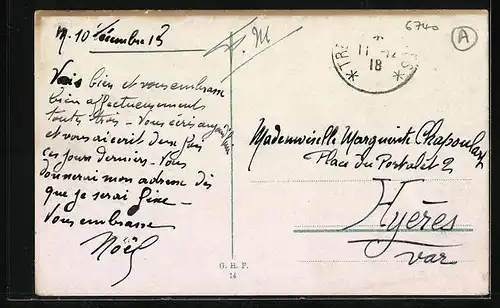 6740
A
F. M
M. 10 Décembre 18
TR
11 - 12
18
Vais bien et vous embrasse
bien affectueusement
toutes trois - Vous écris aujourd'hui
et vous ai écrit deux fois
ces jours derniers - Vous
donnerai mon adresse dès
que je serai fixé -
Vous embrasse
Noël
Mademoiselle Marguerite
Place du Portalet 2
Hyères
Var
G. H. F.
14